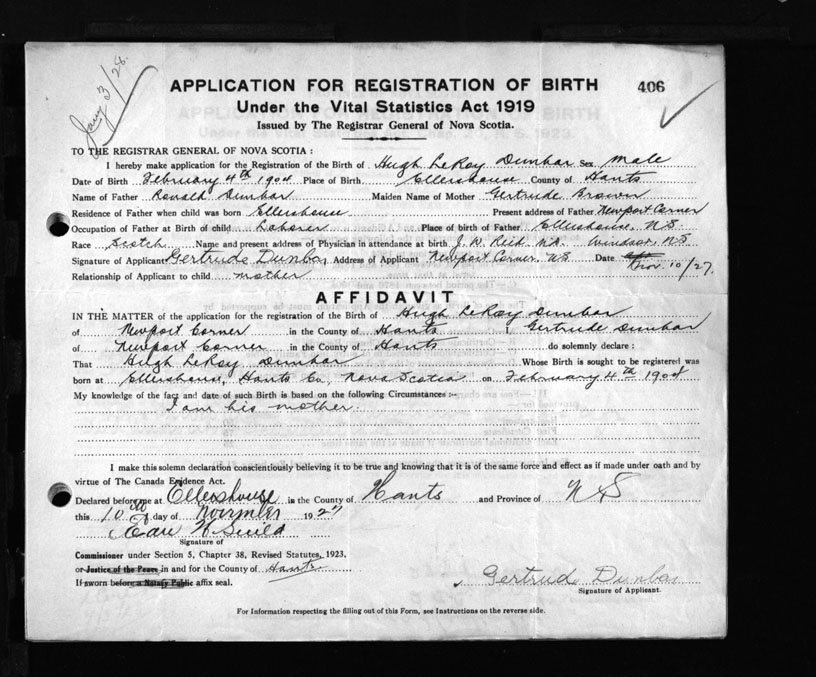 Jany 3/28.
APPLICATION FOR REGISTRATION OF BIRTH 406
Under the Vital Statistics Act 1919
Issued by The Registrar General of Nova Scotia.
TO THE REGISTRAR GENERAL OF NOVA SCOTIA :
I hereby make application for the Registration of the Birth of Hugh LeRoy Dunbar Sex Male
Date of Birth February 4th 1904 Place of Birth Ellershouse County of Hants
Name of Father Ronald Dunbar Maiden Name of Mother Gertrude Brown
Residence of Father when child was born Ellershouse Present address of Father Newport Corner
Occupation of Father at Birth of child Laborer Place of birth of Father Ellershouse, N.S
Race Scotch Name and present address of Physician in attendance at birth J. W. Reid M.A. Windsor, N.S
Signature of Applicant Gertrude Dunbar Address of Applicant Newport Corner, N.S Date Nov. 10/27.
Relationship of Applicant to child mother
AFFIDAVIT
IN THE MATTER of the application for the registration of the Birth of Hugh LeRoy Dunbar
of Newport Corner in the County of Hants I, Gertrude Dunbar
of Newport Corner in the County of Hants do solemnly declare :
That Hugh LeRoy Dunbar Whose Birth is sought to be registered was
born at Ellershouse, Hants Co, Nova Scotia on February 4th 1904
My knowledge of the fact and date of such Birth is based on the following Circumstances :-
I am his mother.
I make this solemn declaration conscientiously believing it to be true and knowing that it is of the same force and effect as if made under oath and by
virtue of The Canada Evidence Act.
Declared before me at Ellershouse in the County of Hants and Province of N S
this 10th day of November 1927
Signature of
Commissioner under Section 5, Chapter 38, Revised Statutes, 1923.
or Justice of the Peace in and for the County of Hants
If sworn before a Notary Public affix seal.
Gertrude Dunbar
Signature of Applicant.
For Information respecting the filling out of this Form, see Instructions on the reverse side.